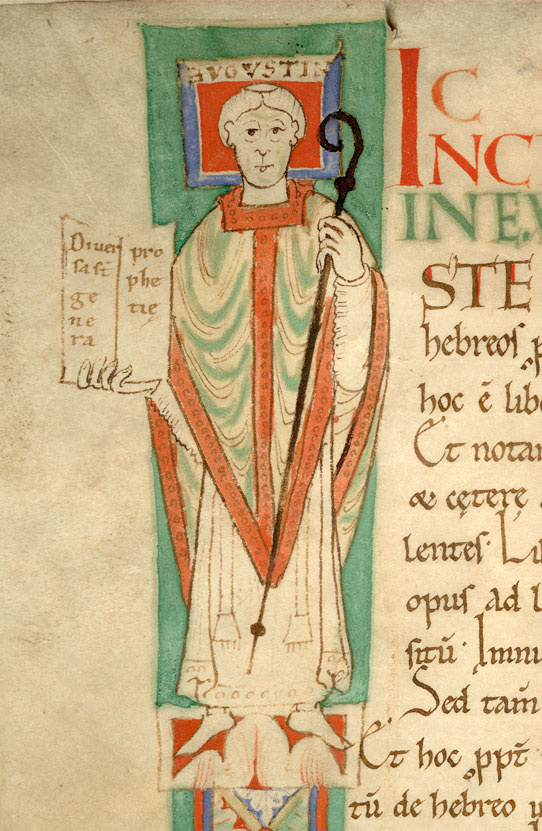 AVGVSTIN
Diverſ
ſa ſt̄
ge
ne
ra
pro
phe
tię
IC
INCI
IN EV
STE
hebreoſ p
hoc ē lib
Et notan
æ cęterę
lentes· Li
opuſ ad l
ſitū· Imnu
Sed tam̄
Et hoc ꝓpt̄
tū de hebreo u